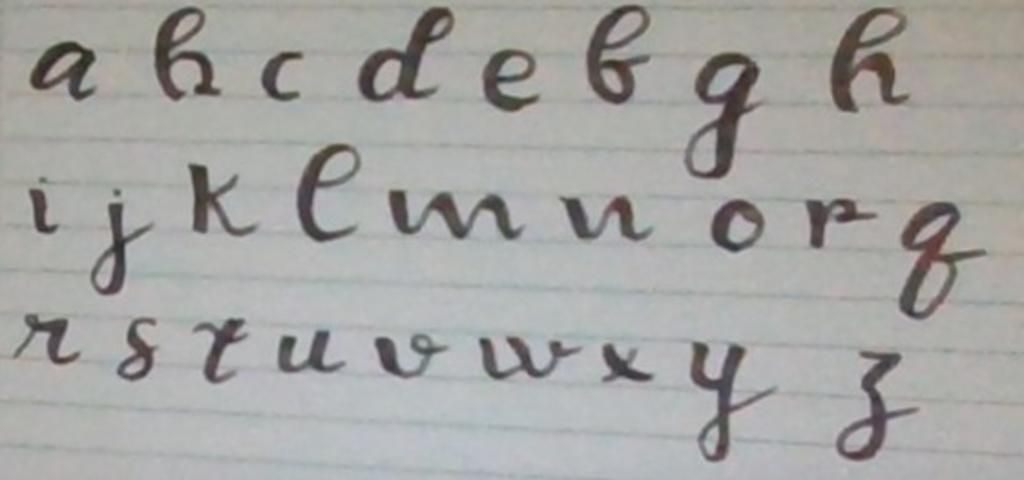 a h c d e b g h
i j k l m n o r q
r s t u v w x y z